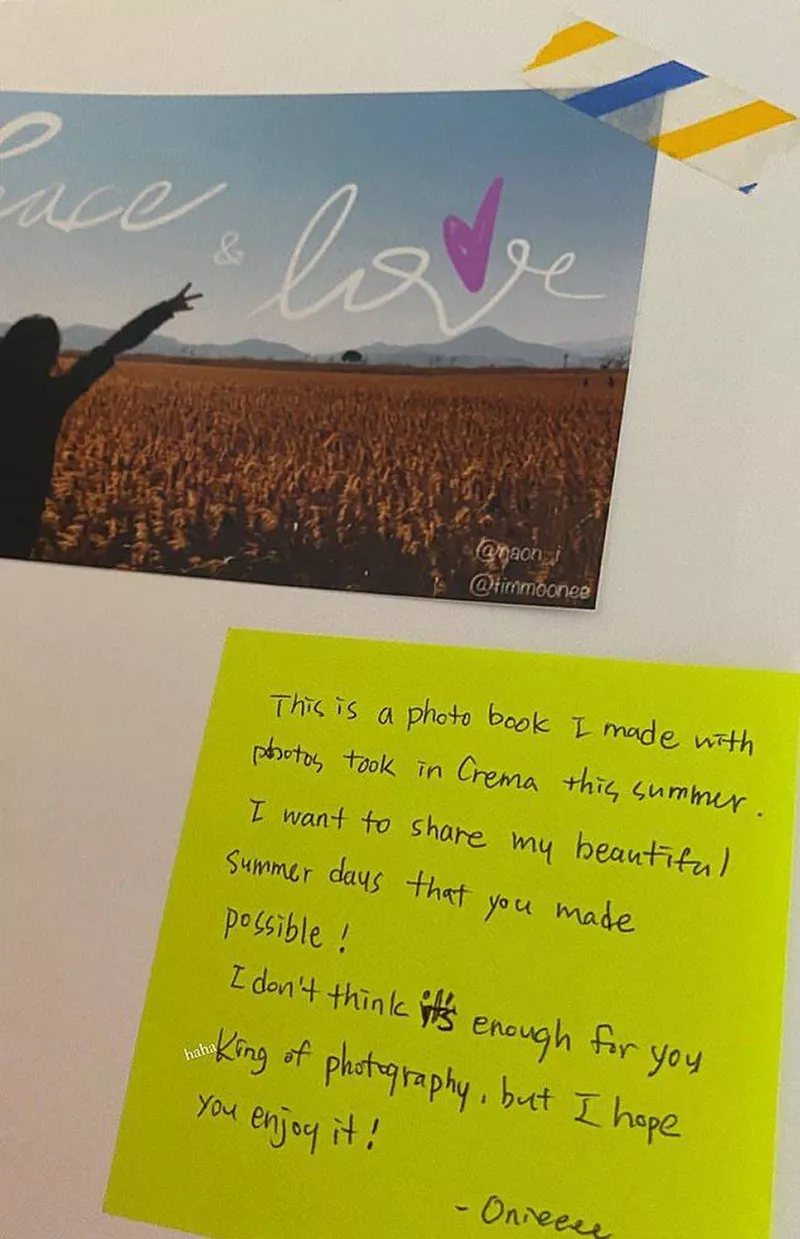 eace
& love
@naon_i
@timmoonee
This is a photo book I made with
photos took in Crema this summer.
I want to share my beautiful
summer days that you made
possible!
I don't think it's enough for you
haha King of photography, but I hope
you enjoy it!
- Onieeee